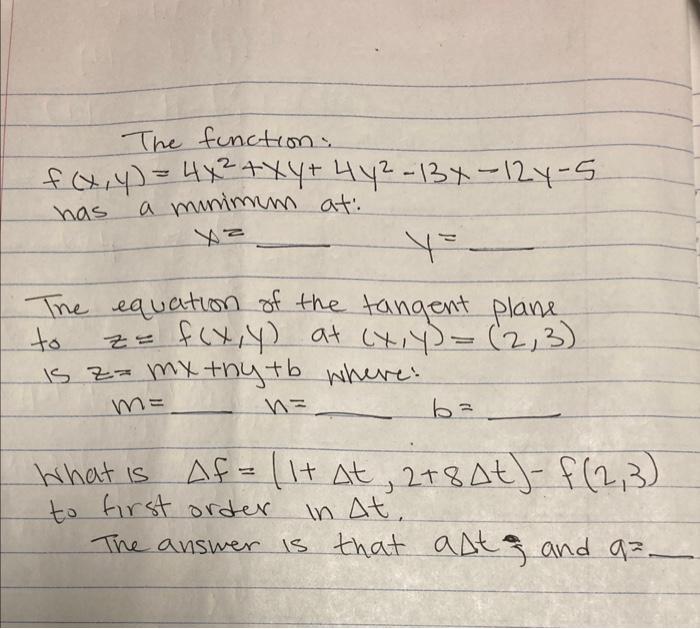 The function:
f(x,y) = 4x² + xy + 4y² - 13x - 12y - 5
has a minimum at:
x = ____ y = ____
The equation of the tangent plane
to z = f(x,y) at (x,y) = (2,3)
is z = mx + ny + b where:
m = ____ n = ____ b = ____
What is Δf = (1 + Δt, 2 + 8Δt) - f(2,3)
to first order in Δt.
The answer is that aΔt; and a = ____